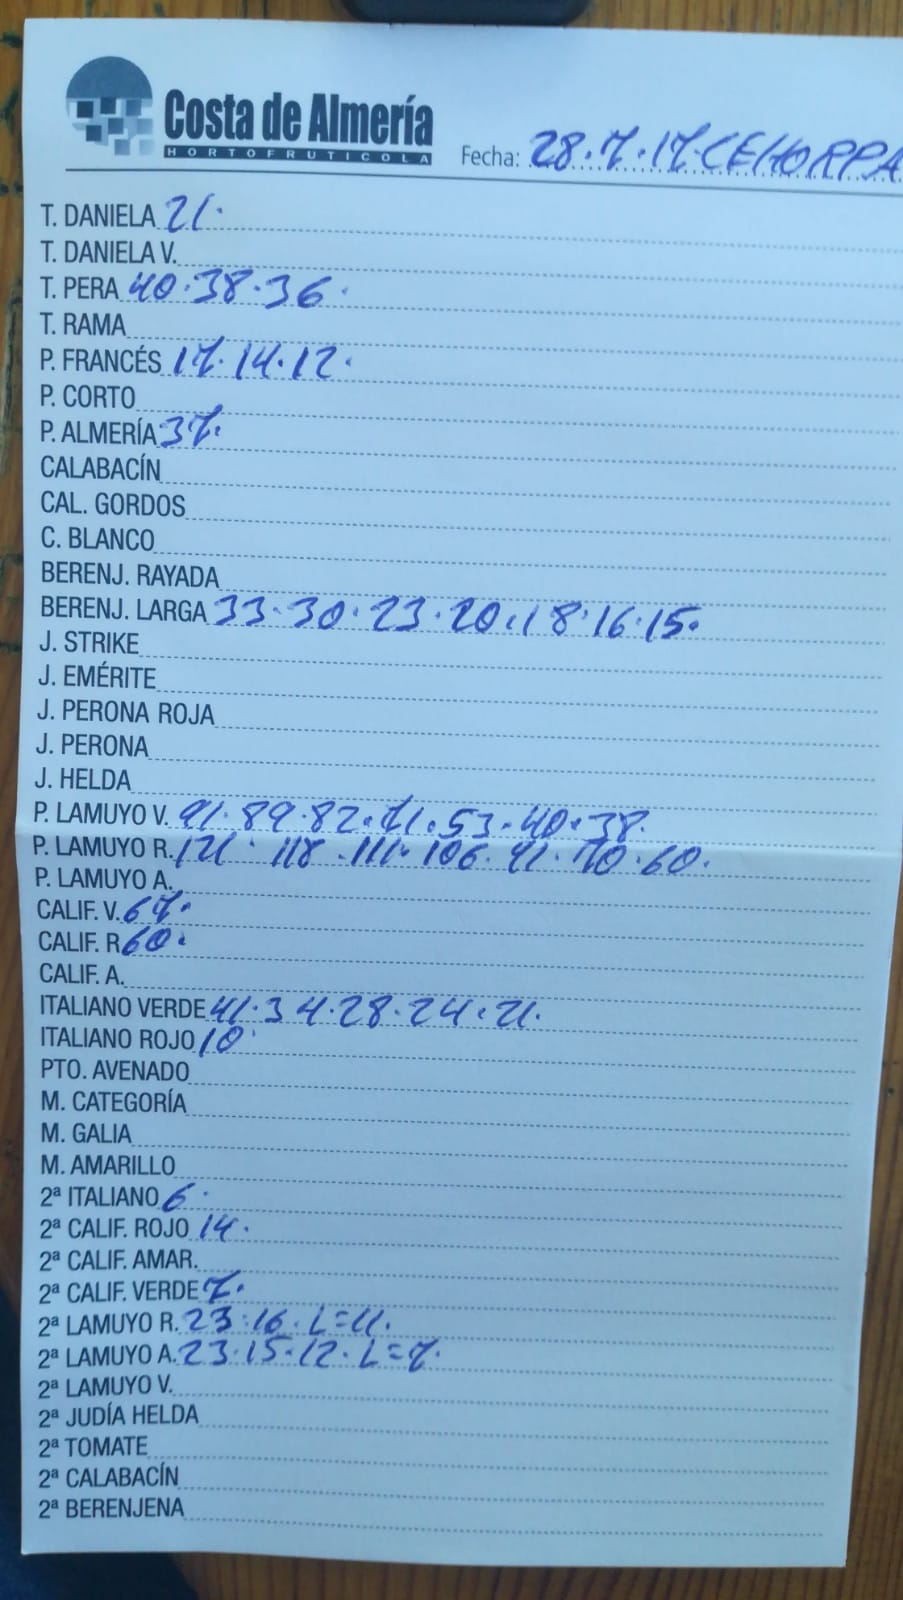 Costa de Almería
HORTOFRUTICOLA
Fecha: 28.7.17.CEHORPA
T. DANIELA 21.
T. DANIELA V.
T. PERA 40.38.36.
T. RAMA
P. FRANCÉS 17.14.12.
P. CORTO
P. ALMERÍA 37.
CALABACÍN
CAL. GORDOS
C. BLANCO
BERENJ. RAYADA
BERENJ. LARGA 33.30.23.20.18.16.15.
J. STRIKE
J. EMÉRITE
J. PERONA ROJA
J. PERONA
J. HELDA
P. LAMUYO V. 91.89.82.71.53.40.38.
P. LAMUYO R. 121.118.111.106.91.70.60.
P. LAMUYO A.
CALIF. V. 67.
CALIF. R 60.
CALIF. A.
ITALIANO VERDE 41.34.28.24.21.
ITALIANO ROJO 10.
PTO. AVENADO
M. CATEGORÍA
M. GALIA
M. AMARILLO
2ª ITALIANO 6.
2ª CALIF. ROJO 14.
2ª CALIF. AMAR.
2ª CALIF. VERDE 7.
2ª LAMUYO R. 23.16.L=11.
2ª LAMUYO A. 23.15.12.L=7.
2ª LAMUYO V.
2ª JUDÍA HELDA
2ª TOMATE
2ª CALABACÍN
2ª BERENJENA